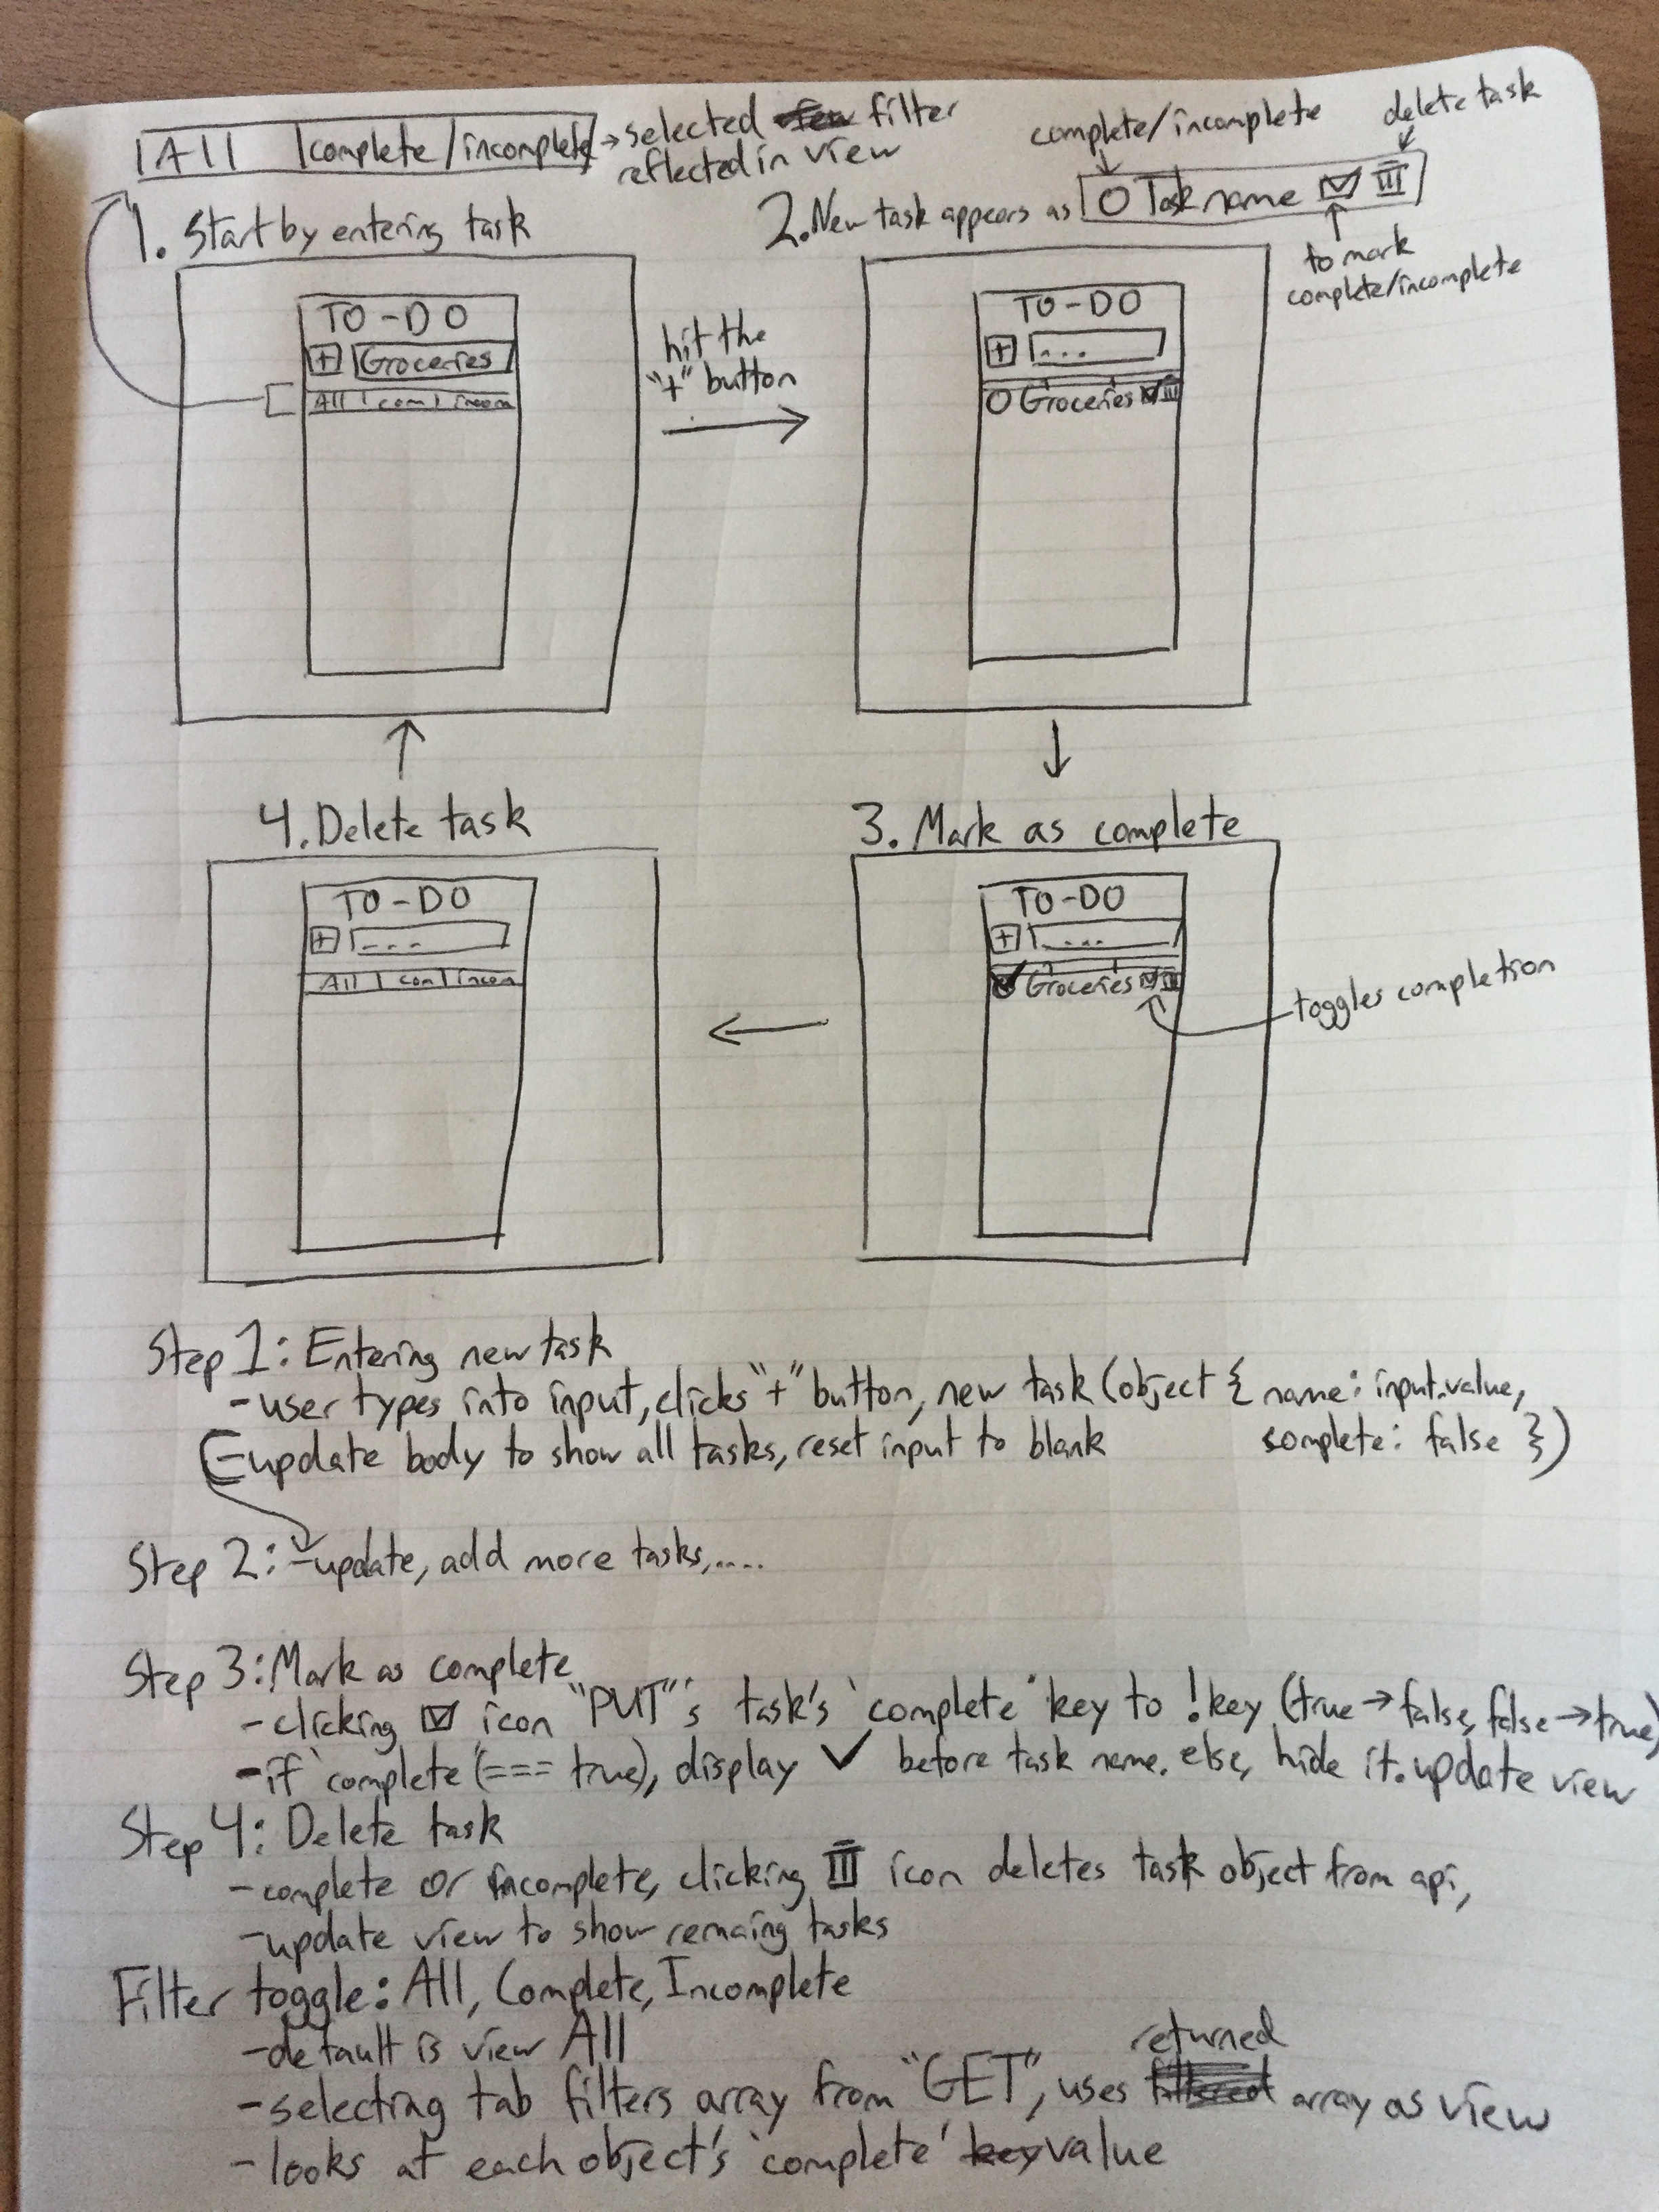 All | complete/incomplete → selected filter
reflected in view
complete/incomplete
delete task
1. Start by entering task
2. New task appears as O Task name
to mark
complete/incomplete
TO-DO
+ Groceries
All | com | incom
hit the
"+" button
TO-DO
+ ...
O Groceries
4. Delete task
3. Mark as complete
TO-DO
+ ...
All | com | incom
TO-DO
+ ....
Groceries
toggles completion
Step 1: Entering new task
-user types into input, clicks "+" button, new task (object { name: input.value,
complete: false })
-update body to show all tasks, reset input to blank
Step 2: -update, add more tasks,.....
Step 3: Mark as complete
-clicking ☑ icon "PUT"'s task's `complete` key to !key (true → false, false → true)
-if `complete (=== true), display ✓ before task name. else, hide it. update view
Step 4: Delete task
-complete or incomplete, clicking icon deletes task object from api,
-update view to show remaing tasks
Filter toggle: All, Complete, Incomplete
-default is view All
-selecting tab filters array from "GET", uses returned array as view
-looks at each object's `complete' key value